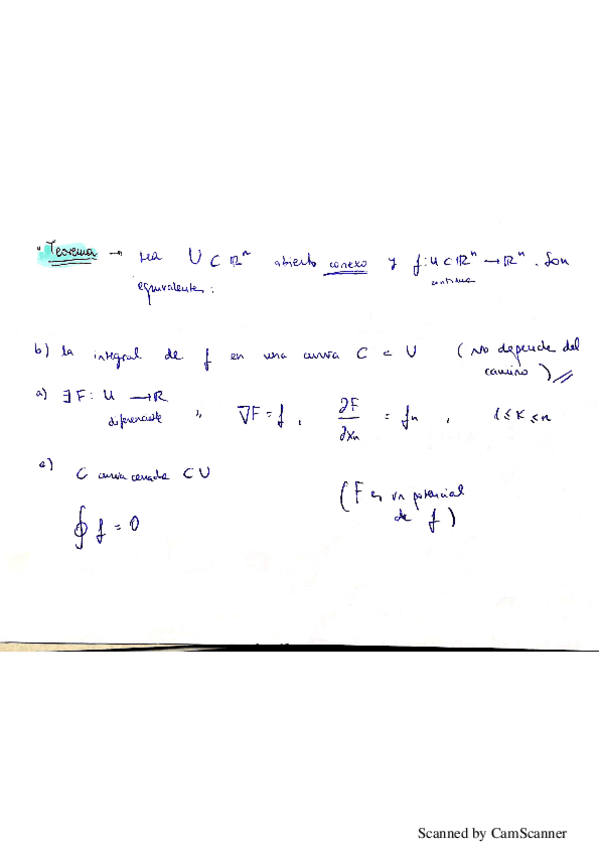 " Teorema → sea U ⊂ ℝⁿ abierto conexo y f: U ⊂ ℝⁿ → ℝⁿ . Son
continua
equivalentes :
b) la integral de f en una curva C ⊂ U ( No depende del
camino ) //
a) ∃ F: U → ℝ ,, ∇F = f , ∂F/∂xₖ = fₖ , 1 ≤ k ≤ n
diferenciable
c) C curva cerrada ⊂ U
( F es un potencial
de f )
∮ f = 0
Scanned by CamScanner